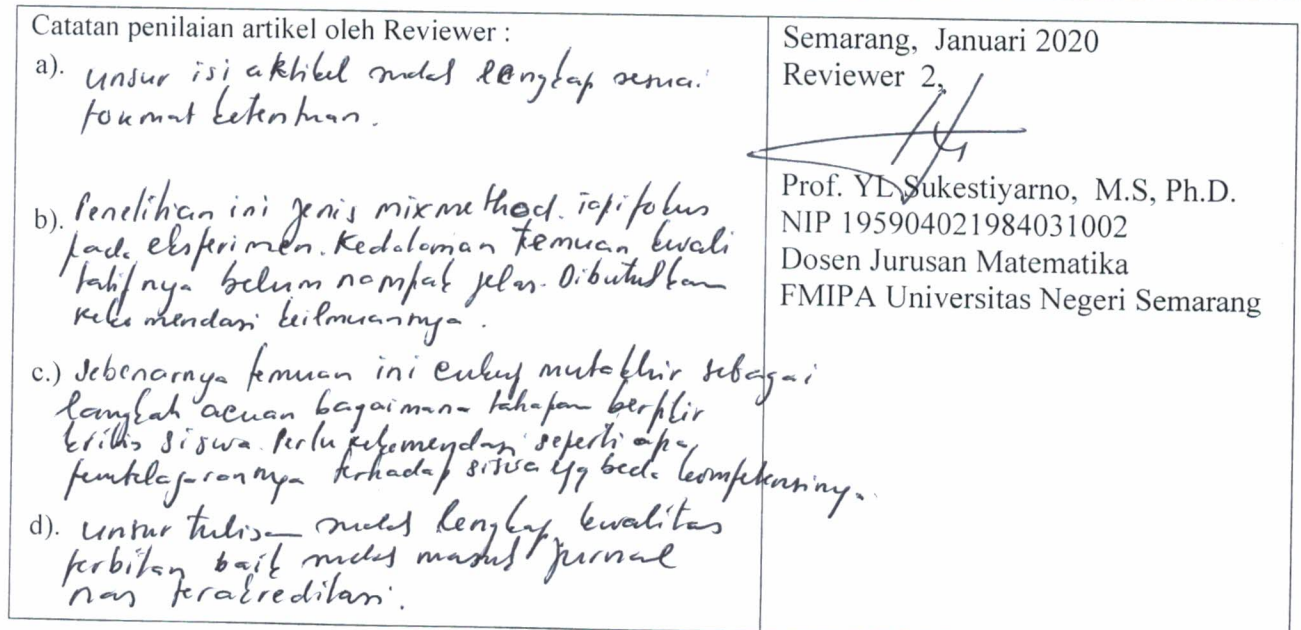 Catatan penilaian artikel oleh Reviewer :
a). unsur isi artikel sudah lengkap sesuai
format ketentuan.
b). Penelitian ini jenis mixmethod. tapi fokus
pada eksperimen. Kedalaman temuan kwali
tatifnya belum nampak jelas. Dibutuhkan
rekomendasi keilmuannya.
c.) Sebenarnya temuan ini cukup mutakhir sebagai
langkah acuan bagaimana tahapan berpikir
kritis siswa. Perlu rekomendasi seperti apa
pembelajarannya terhadap siswa yg beda kompetensinya.
d). unsur tulisan sudah lengkap kwalitas
terbitan baik sudah masuk jurnal
nas terakreditasi.
Semarang, Januari 2020
Reviewer 2,
Prof. YL Sukestiyarno, M.S, Ph.D.
NIP 195904021984031002
Dosen Jurusan Matematika
FMIPA Universitas Negeri Semarang